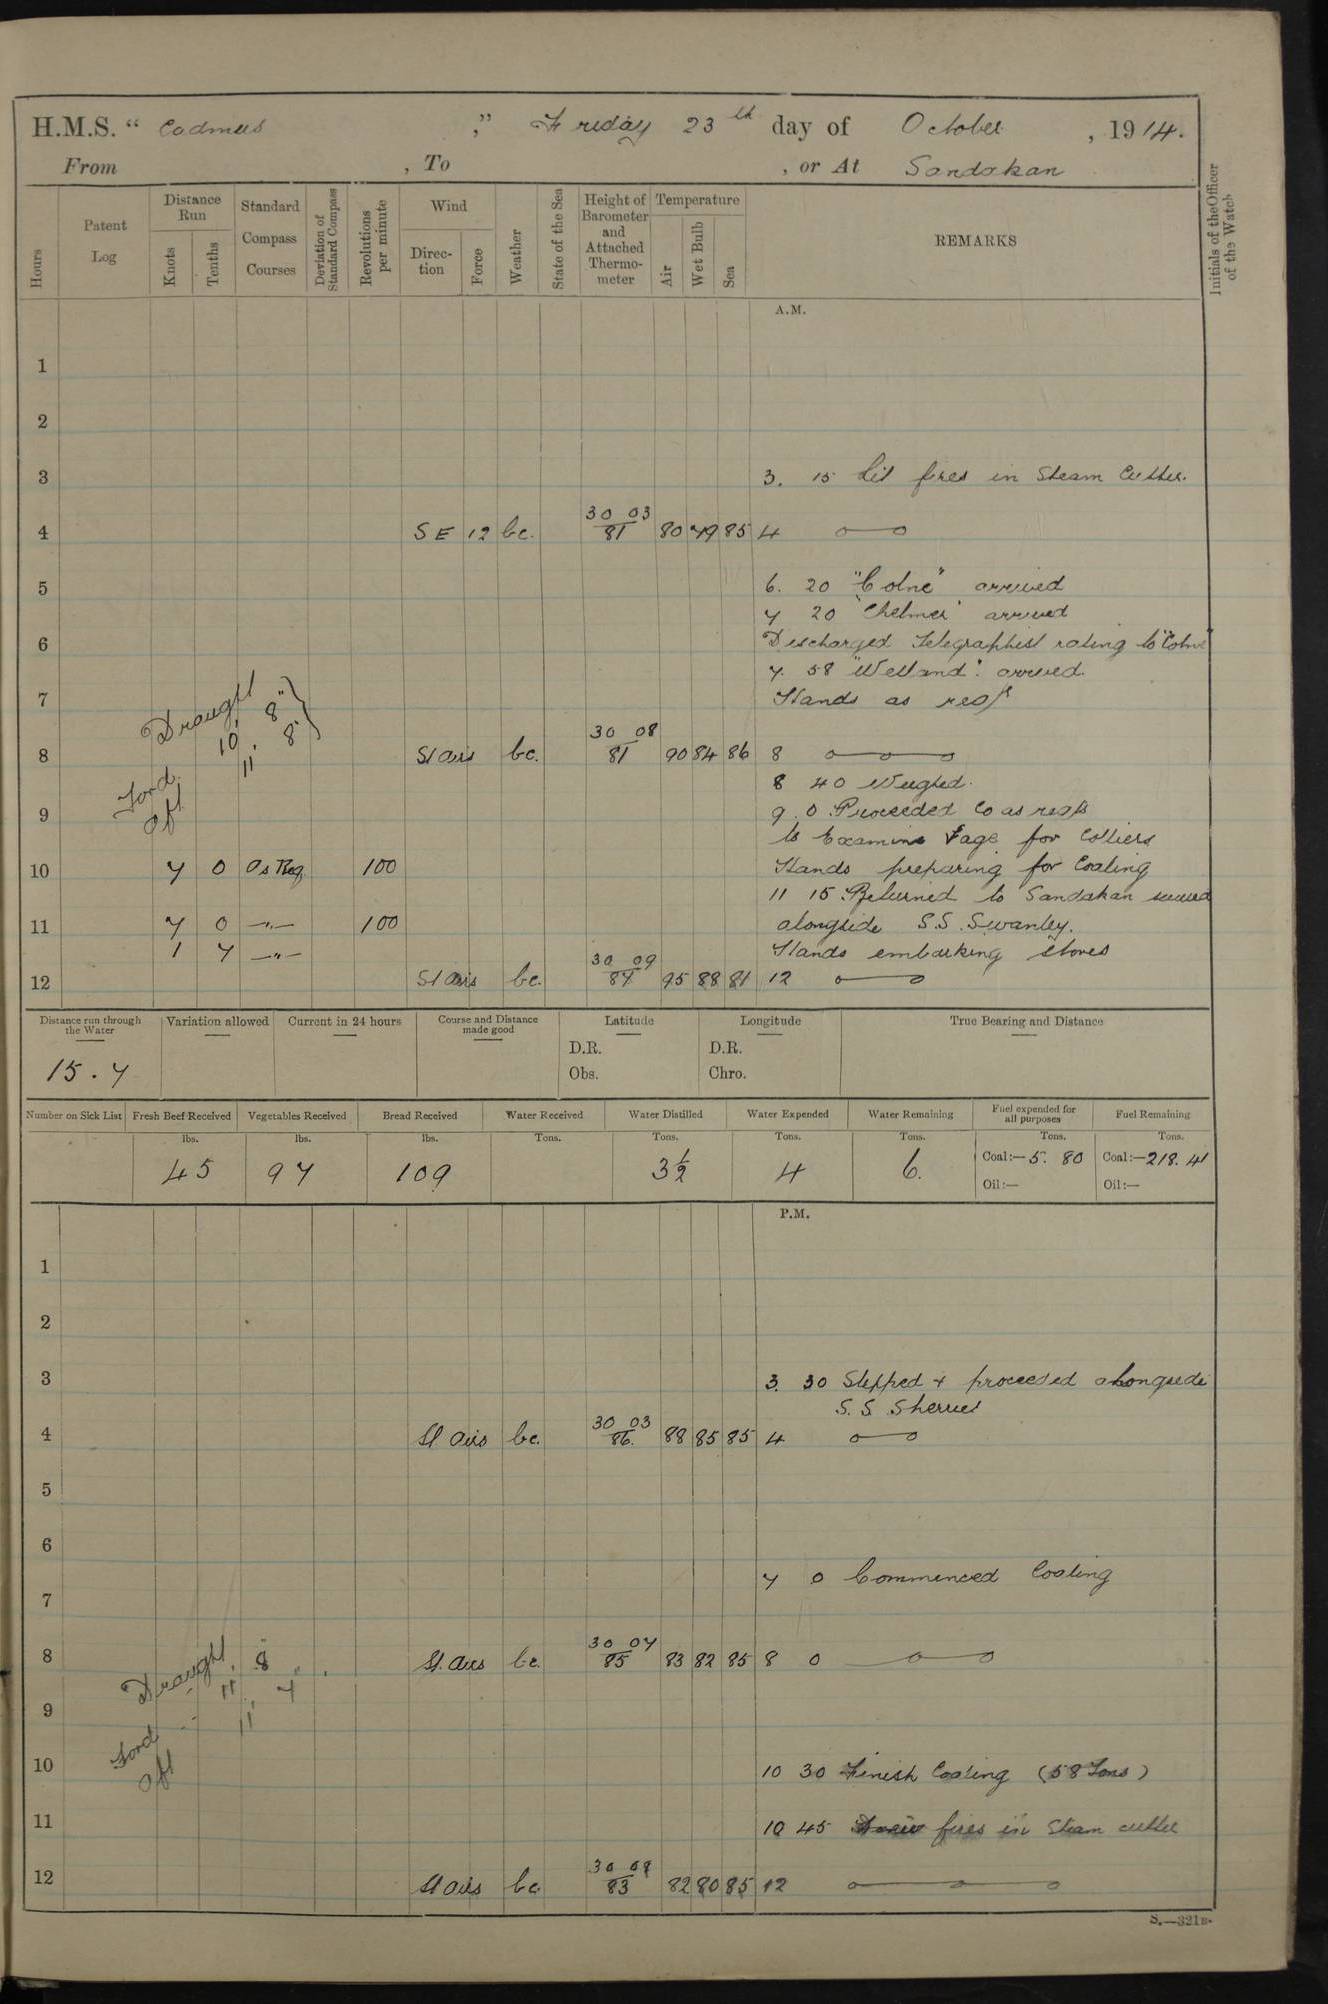 H.M.S. "Cadmus," Friday 23th day of October, 1914.
From , To , or At Sandakan
Hours
Patent Log
Distance Run
Knots
Tenths
Standard Compass Courses
Deviation of Standard Compass
Revolutions per minute
Wind
Direction
Force
Weather
State of the Sea
Height of Barometer and Attached Thermometer
Temperature
Air
Wet Bulb
Sea
REMARKS
Initials of the Officer of the Watch
A.M.
1
2
3 3. 15 Lit fires in Steam Cutter.
4 SE 12 bc. 30 03 / 81 80 79 85 4
5 6. 20 "Colne" arrived
7 20 "Chelmer" arrived
6 Discharged Telegraphist rating to "Colne"
7. 58 "Welland". arrived.
7 Hands as reqd
Draught
Ford 10' 8"
Aft 11' 8"
8 Stairs bc. 30 08 / 81 90 84 86 8
8 40 Weighed.
9 9. 0 Proceeded Co as reqd
to Examine for Colliers
10 7 0 As Req 100 Hands preparing for Coaling
11 15 Returned to Sandakan secured
11 7 0 -"- 100 alongside S.S. Swanley.
1 7 -"- Hands embarking stores
12 Stairs bc. 30 09 / 87 95 88 81 12
Distance run through the Water
15.7
Variation allowed
Current in 24 hours
Course and Distance made good
Latitude
D.R.
Obs.
Longitude
D.R.
Chro.
True Bearing and Distance
Number on Sick List
Fresh Beef Received
lbs.
45
Vegetables Received
lbs.
97
Bread Received
lbs.
109
Water Received
Tons.
Water Distilled
Tons.
3½
Water Expended
Tons.
4
Water Remaining
Tons.
6.
Fuel expended for all purposes
Tons.
Coal:— 5. 80
Oil:—
Fuel Remaining
Tons.
Coal:— 218. 41
Oil:—
P.M.
1
2
3 3. 30 Slipped + proceeded alongside
S.S.
4 St airs bc. 30 03 / 86. 88 85 85 4
5
6
7 0 Commenced Coaling
7
8 St. airs bc. 30 07 / 85 83 82 85 8 0
Draught
Ford 11' 8"
Aft 11' 7"
9
10 10 30 Finish Coaling (58 Tons)
11 10 45 Drew fires in Steam cutter
12 St airs bc. 30 09 / 83 82 80 85 12
S.—321B.